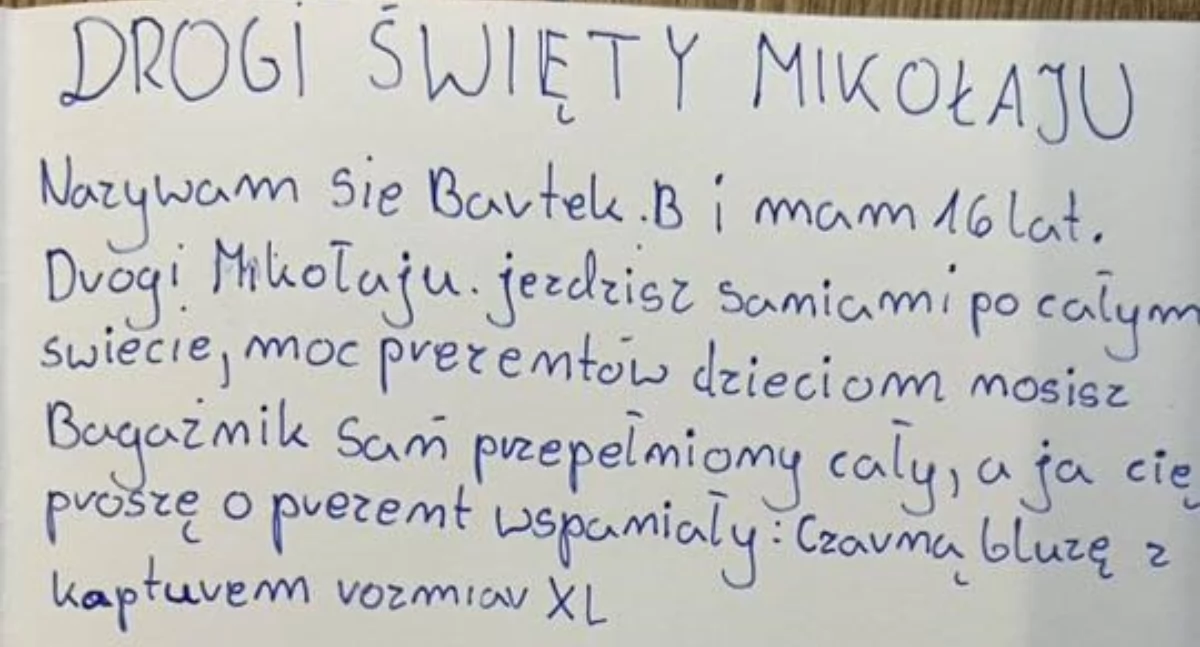 DROGI ŚWIĘTY MIKOŁAJU
Nazywam sie Bartek.B i mam 16 lat.
Drogi Mikołaju. jerdzisz saniami po całym
swiecie, moc prezentów dzieciom nosisz
Bagaźnik sań przepełniony cały, a ja cię
proszę o prezent wspaniały: Czarną bluzę z
kapturem rozmiar XL